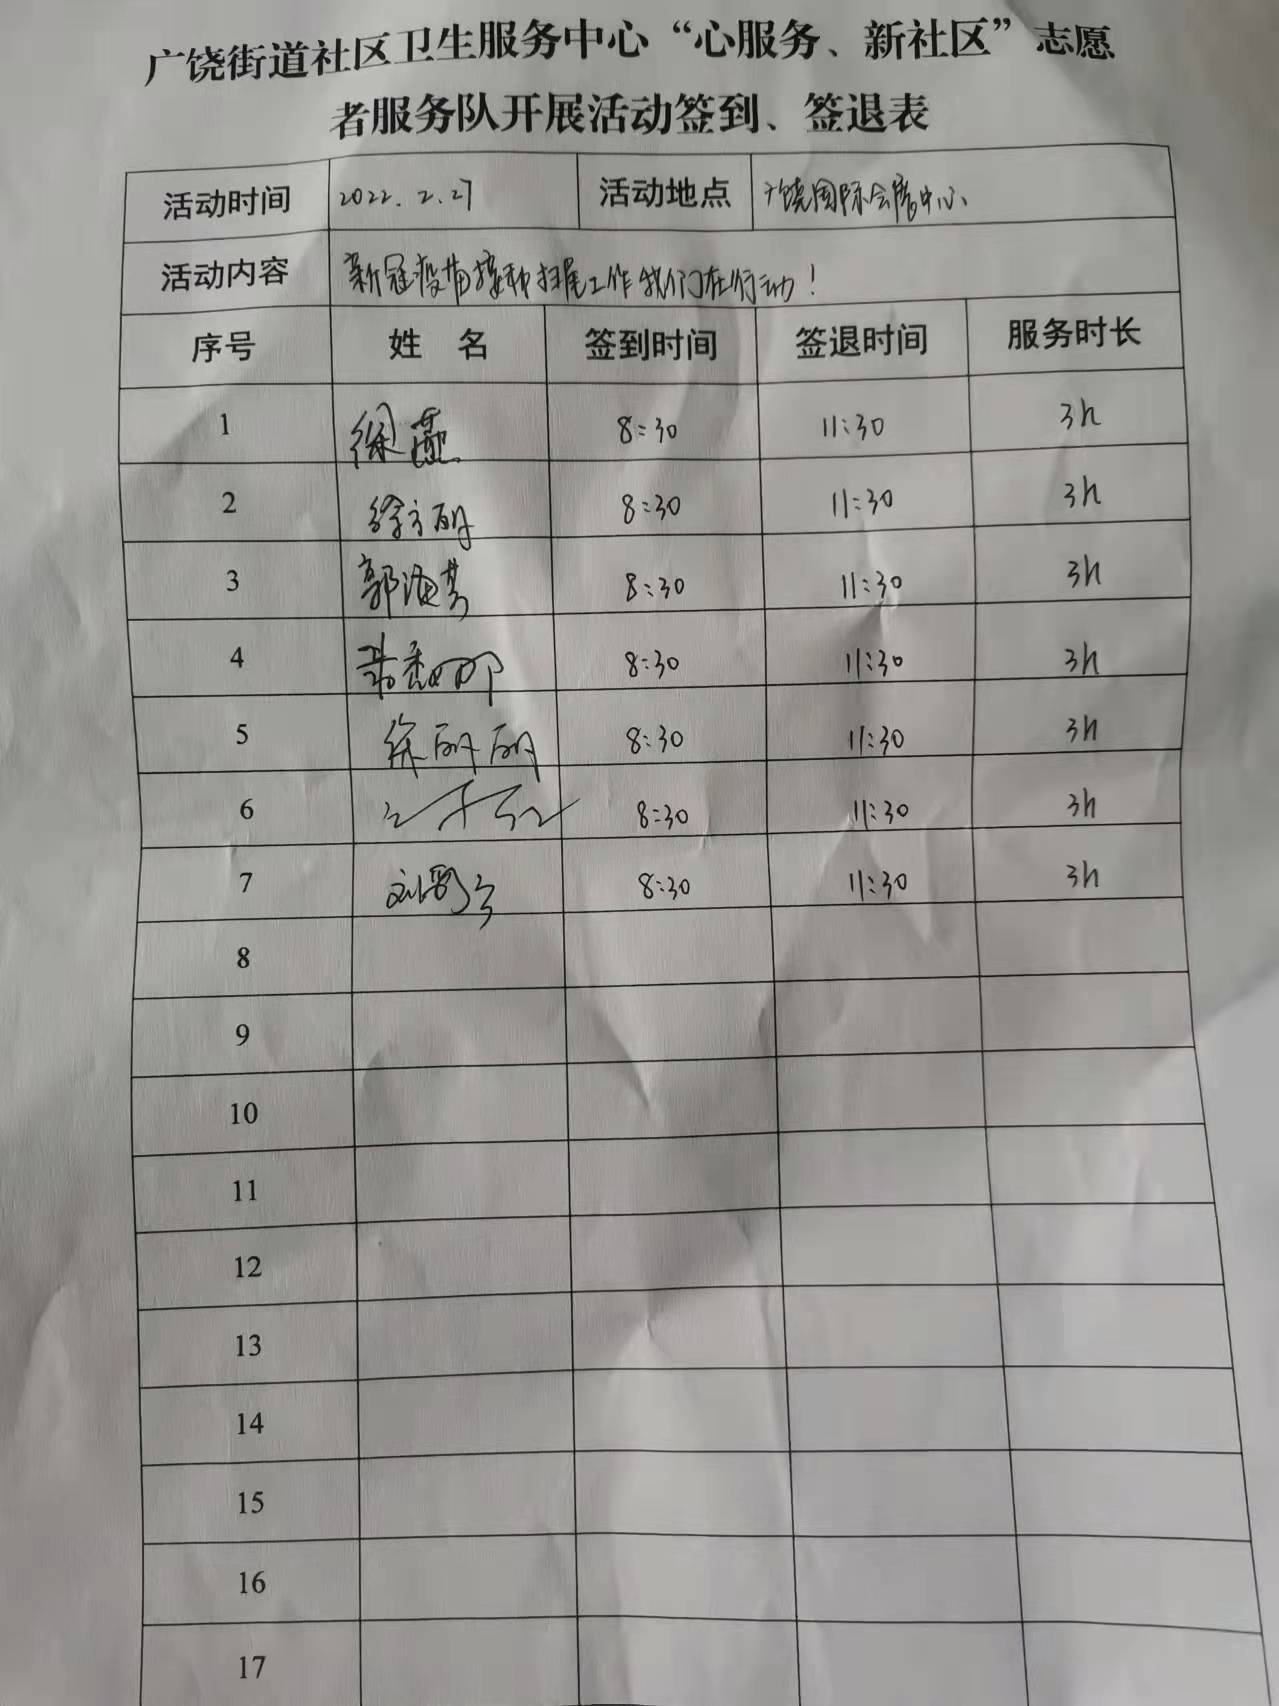 广饶街道社区卫生服务中心“心服务、新社区”志愿
者服务队开展活动签到、签退表
活动时间 2022.2.27 活动地点 广饶国际会展中心
活动内容 新冠疫苗接种扫尾工作我们在行动！
序号 姓 名 签到时间 签退时间 服务时长
1 徐燕 8:30 11:30 3h
2 徐方丽 8:30 11:30 3h
3 郭海英 8:30 11:30 3h
4 8:30 11:30 3h
5 徐丽丽 8:30 11:30 3h
6 8:30 11:30 3h
7 刘 8:30 11:30 3h
8
9
10
11
12
13
14
15
16
17